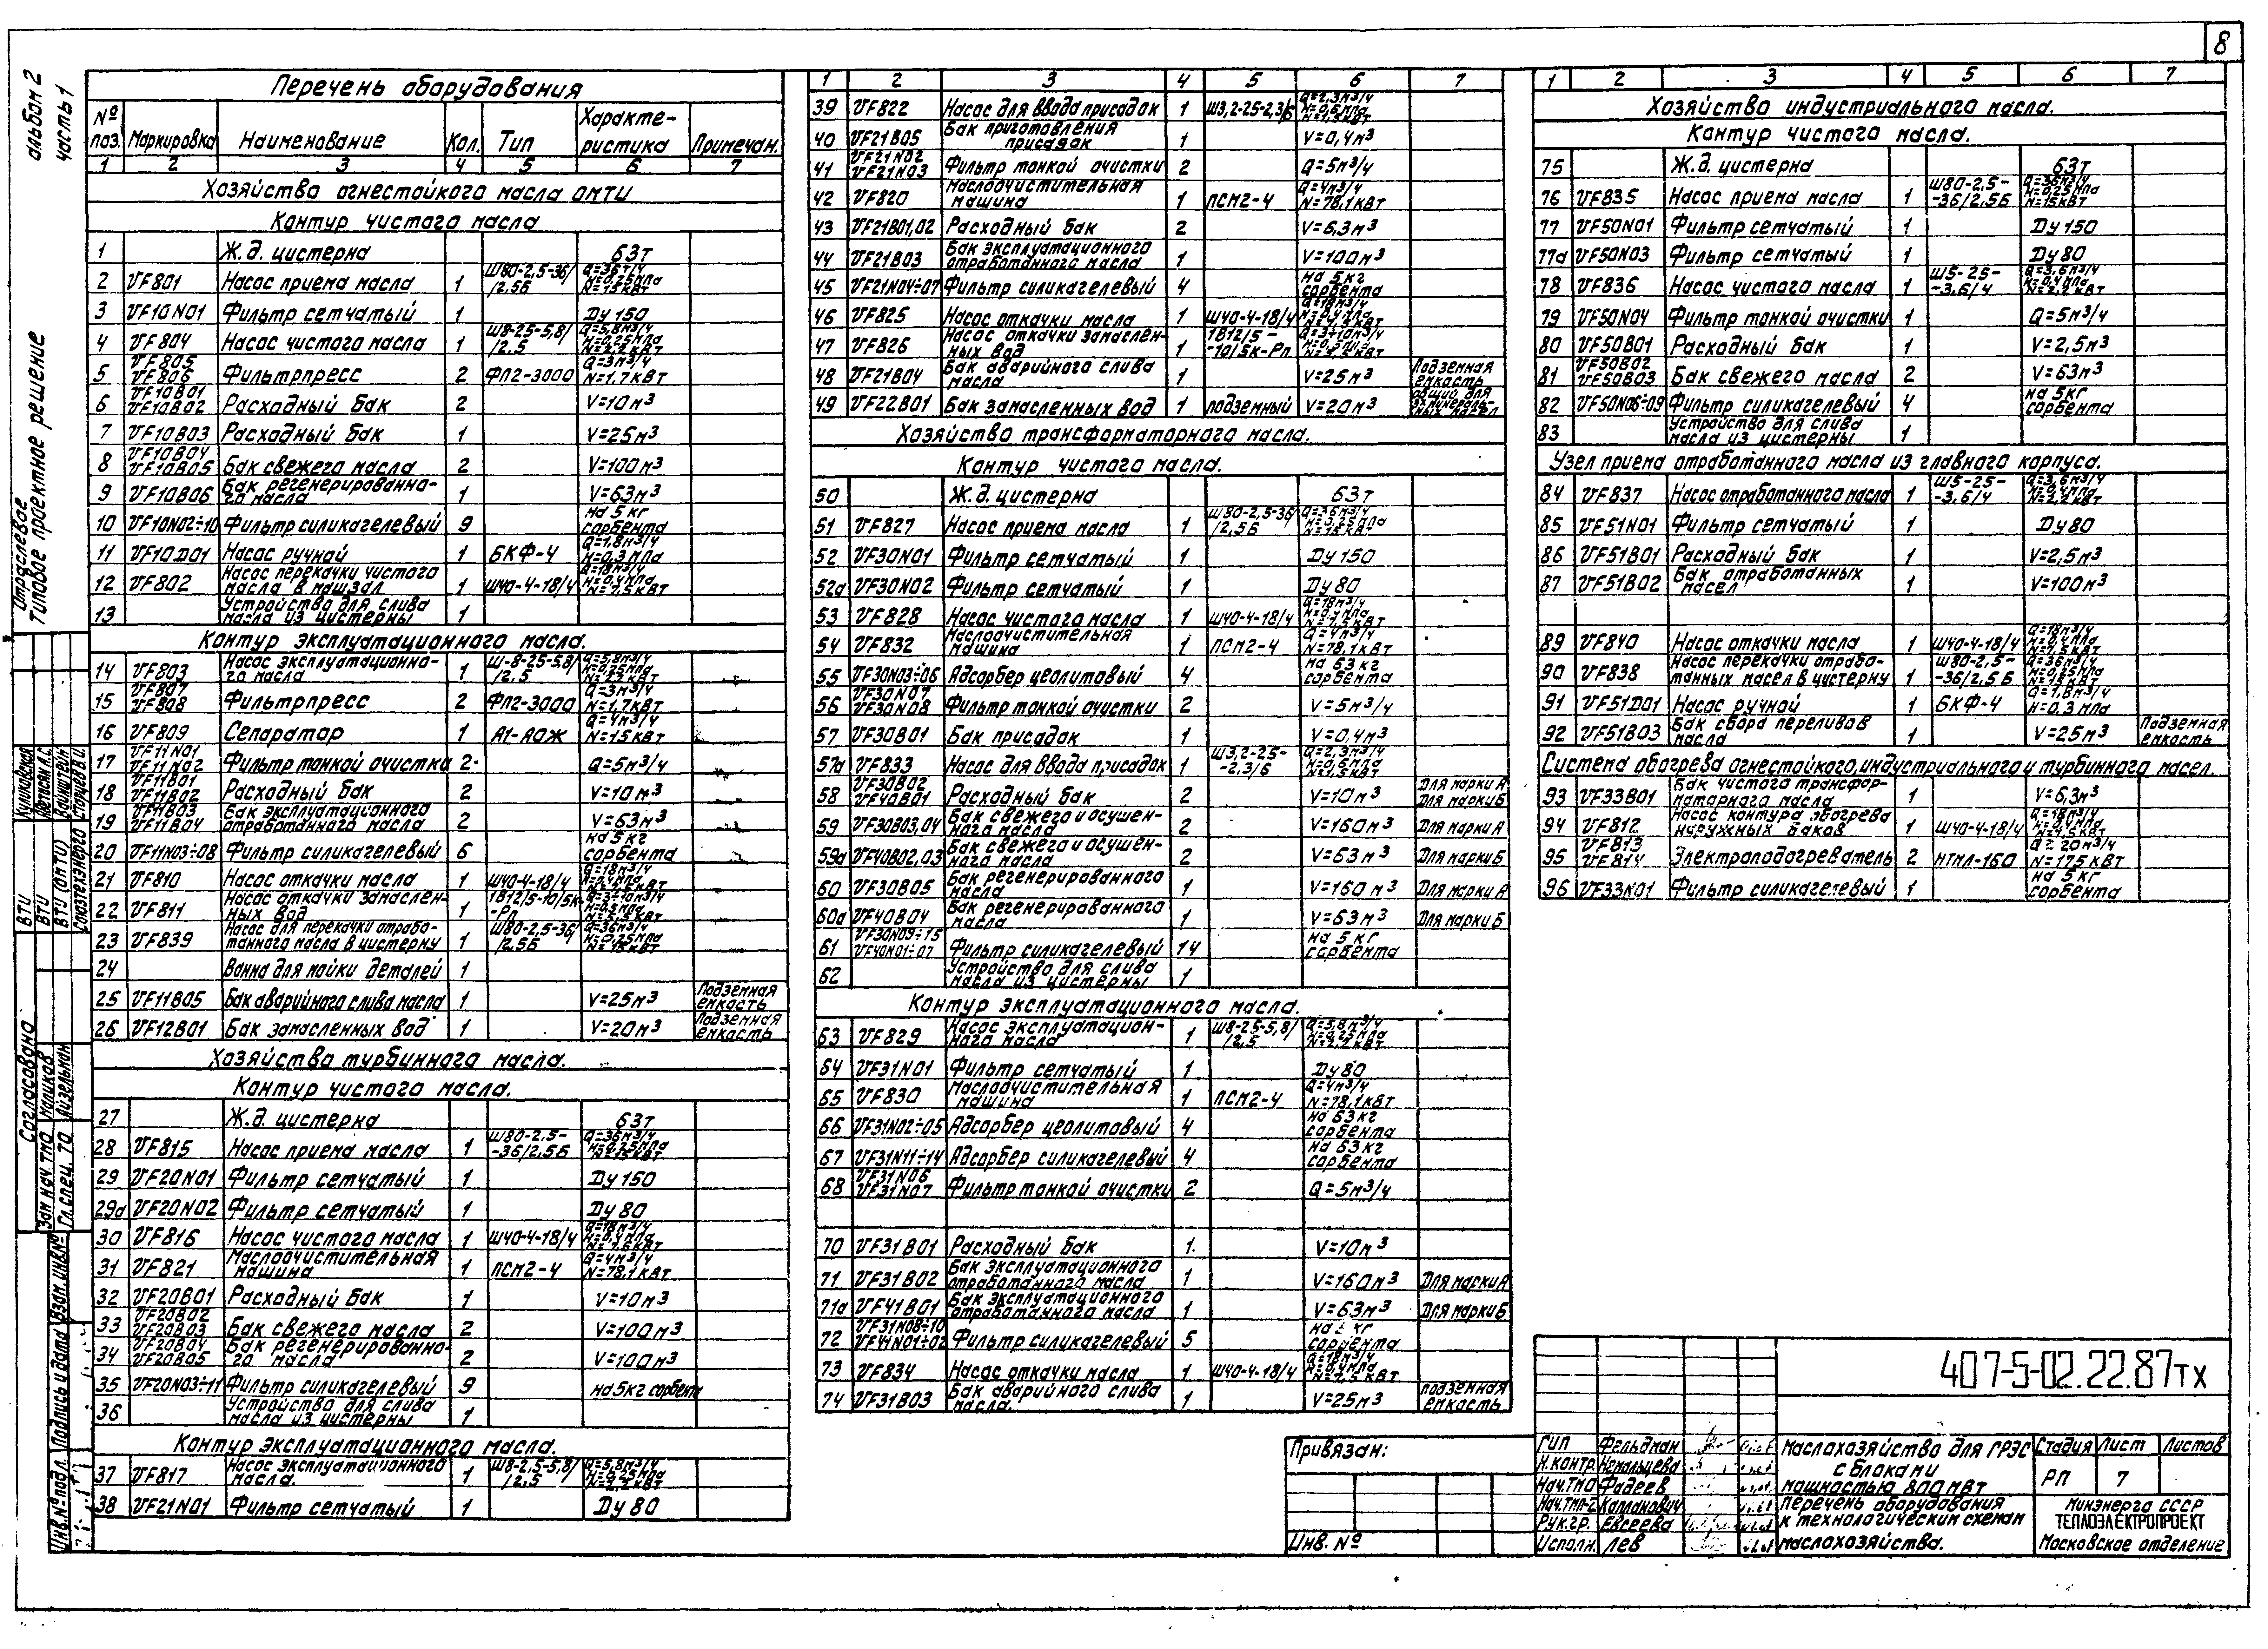 8
альбом 2
часть 1
Отраслевое
Типовое проектное решение
Перечень оборудования
№ поз. Маркировка Наименование Кол. Тип Характеристика Примечан.
1 2 3 4 5 6 7
Хозяйство огнестойкого масла ОМТИ
Контур чистого масла
1 Ж.д. цистерна 63т
2 VF801 Насос приема масла 1 Ш80-2,5-36/2,5Б Q=36т/ч H=0,25мпа N=15кВт
3 VF10N01 Фильтр сетчатый 1 Ду150
4 VF804 Насос чистого масла 1 Ш8-25-5,8/2,5 Q=5,8м³/ч H=0,25мпа N=2,2кВт
5 VF805 VF806 Фильтрпресс 2 ФП2-3000 Q=3м³/ч N=1,7кВт
6 VF10B01 VF10B02 Расходный бак 2 V=10м³
7 VF10B03 Расходный бак 1 V=25м³
8 VF10B04 VF10B05 Бак свежего масла 2 V=100м³
9 VF10B06 Бак регенерированного масла 1 V=63м³
10 VF10N02÷10 Фильтр силикагелевый 9 на 5кг сорбента
11 VF10D01 Насос ручной 1 БКФ-4 Q=1,8м³/ч H=0,3мпа
12 VF802 Насос перекачки чистого масла в машзал 1 Ш40-4-18/4 Q=18м³/ч H=0,4мпа N=7,5кВт
13 Устройство для слива масла из цистерны 1
Контур эксплуатационного масла.
14 VF803 Насос эксплуатационного масла 1 Ш-8-25-5,8/2,5 Q=5,8м³/ч H=0,25мпа N=2,2кВт
15 VF807 VF808 Фильтрпресс 2 ФП2-3000 Q=3м³/ч N=1,7кВт
16 VF809 Сепаратор 1 А1-АОЖ Q=4м³/ч N=15кВт
17 VF11N01 VF11N02 Фильтр тонкой очистки 2 Q=5м³/ч
18 VF11B01 VF11B02 Расходный бак 2 V=10м³
19 VF11B03 VF11B04 Бак эксплуатационного отработанного масла 2 V=63м³
20 VF11N03÷08 Фильтр силикагелевый 6 на 5кг сорбента
21 VF810 Насос откачки масла 1 Ш40-4-18/4 Q=18м³/ч H=0,4мпа N=7,5кВт
22 VF811 Насос откачки замасленных вод 1 1В12/5-10/5К-Рп Q=3÷10м³/ч H=0,5мпа
23 VF839 Насос для перекачки отработанного масла в цистерну 1 Ш80-2,5-36/2,5Б Q=36м³/ч H=0,25мпа N=15кВт
24 Ванна для мойки деталей 1
25 VF11B05 Бак аварийного слива масла 1 V=25м³ Подземная емкость
26 VF12B01 Бак замасленных вод 1 V=20м³ Подземная емкость
Хозяйство турбинного масла.
Контур чистого масла.
27 Ж.д. цистерна 63т
28 VF815 Насос приема масла 1 Ш80-2,5-36/2,5Б Q=36м³/ч H=0,25мпа N=15кВт
29 VF20N01 Фильтр сетчатый 1 Ду150
29а VF20N02 Фильтр сетчатый 1 Ду80
30 VF816 Насос чистого масла 1 Ш40-4-18/4 Q=18м³/ч H=0,4мпа N=7,5кВт
31 VF821 Маслоочистительная машина 1 ПСМ2-4 Q=4м³/ч N=78,1кВт
32 VF20B01 Расходный бак 1 V=10м³
33 VF20B02 VF20B03 Бак свежего масла 2 V=100м³
34 VF20B04 VF20B05 Бак регенерированного масла 2 V=100м³
35 VF20N03÷11 Фильтр силикагелевый 9 на 5кг сорбента
36 Устройство для слива масла из цистерны 1
Контур эксплуатационного масла.
37 VF817 Насос эксплуатационного масла. 1 Ш8-2,5-5,8/2,5 Q=5,8м³/ч H=0,25мпа N=2,2кВт
38 VF21N01 Фильтр сетчатый 1 Ду80
1 2 3 4 5 6 7
39 VF822 Насос для ввода присадок 1 Ш3,2-25-2,3/6 Q=2,3м³/ч H=0,6мпа N=1,5кВт
40 VF21B05 Бак приготовления присадок 1 V=0,4м³
41 VF21N02 VF21N03 Фильтр тонкой очистки 2 Q=5м³/ч
42 VF820 Маслоочистительная машина 1 ПСМ2-4 Q=4м³/ч N=78,1кВт
43 VF21B01,02 Расходный бак 2 V=6,3м³
44 VF21B03 Бак эксплуатационного отработанного масла 1 V=100м³
45 VF21N04÷07 Фильтр силикагелевый 4 на 5кг сорбента
46 VF825 Насос откачки масла 1 Ш40-4-18/4 Q=18м³/ч H=0,4мпа N=7,5кВт
47 VF826 Насос откачки замасленных вод 1 1В12/5-10/5К-Рп Q=3÷10м³/ч H=0,5мпа
48 VF21B04 Бак аварийного слива масла 1 V=25м³ Подземная емкость
49 VF22B01 Бак замасленных вод 1 подземный V=20м³ общий для 3х минеральных масел
Хозяйство трансформаторного масла.
Контур чистого масла.
50 Ж.д. цистерна 63т
51 VF827 Насос приема масла 1 Ш80-2,5-36/2,5Б Q=36м³/ч H=0,25мпа N=15кВт
52 VF30N01 Фильтр сетчатый 1 Ду150
52а VF30N02 Фильтр сетчатый 1 Ду80
53 VF828 Насос чистого масла 1 Ш40-4-18/4 Q=18м³/ч H=0,4мпа N=7,5кВт
54 VF832 Маслоочистительная машина 1 ПСМ2-4 Q=4м³/ч N=78,1кВт
55 VF30N03÷06 Адсорбер цеолитовый 4 на 63кг сорбента
56 VF30N07 VF30N08 Фильтр тонкой очистки 2 V=5м³/ч
57 VF30B01 Бак присадок 1 V=0,4м³
57а VF833 Насос для ввода присадок 1 Ш3,2-25-2,3/6 Q=2,3м³/ч H=0,6мпа N=1,5кВт
58 VF30B02 VF40B01 Расходный бак 2 V=10м³ Для марки А Для марки Б
59 VF30B03,04 Бак свежего и осушенного масла 2 V=160м³ Для марки А
59а VF40B02,03 Бак свежего и осушенного масла 2 V=63м³ Для марки Б
60 VF30B05 Бак регенерированного масла 1 V=160м³ Для марки А
60а VF40B04 Бак регенерированного масла 1 V=63м³ Для марки Б
61 VF30N09÷15 VF40N01÷07 Фильтр силикагелевый 14 на 5кг сорбента
62 Устройство для слива масла из цистерны 1
Контур эксплуатационного масла.
63 VF829 Насос эксплуатационного масла 1 Ш8-25-5,8/2,5 Q=5,8м³/ч H=0,25мпа N=2,2кВт
64 VF31N01 Фильтр сетчатый 1 Ду80
65 VF830 Маслоочистительная машина 1 ПСМ2-4 Q=4м³/ч N=78,1кВт
66 VF31N02÷05 Адсорбер цеолитовый 4 на 63кг сорбента
67 VF31N11÷14 Адсорбер силикагелевый 4 на 63кг сорбента
68 VF31N06 VF31N07 Фильтр тонкой очистки 2 Q=5м³/ч
70 VF31B01 Расходный бак 1 V=10м³
71 VF31B02 Бак эксплуатационного отработанного масла 1 V=160м³ Для марки А
71а VF41B01 Бак эксплуатационного отработанного масла 1 V=63м³ Для марки Б
72 VF31N08÷10 VF41N01÷02 Фильтр силикагелевый 5 на кг сорбента
73 VF834 Насос откачки масла 1 Ш40-4-18/4 Q=18м³/ч H=0,4мпа N=7,5кВт
74 VF31B03 Бак аварийного слива масла. 1 V=25м³ подземная емкость
1 2 3 4 5 6 7
Хозяйство индустриального масла.
Контур чистого масла.
75 Ж.д. цистерна 63т
76 VF835 Насос приема масла 1 Ш80-2,5-36/2,5Б Q=36м³/ч H=0,25мпа N=15кВт
77 VF50N01 Фильтр сетчатый 1 Ду150
77а VF50N03 Фильтр сетчатый 1 Ду80
78 VF836 Насос чистого масла 1 Ш5-25-3,6/4 Q=3,6м³/ч H=0,4мпа N=2,2кВт
79 VF50N04 Фильтр тонкой очистки 1 Q=5м³/ч
80 VF50B01 Расходный бак 1 V=2,5м³
81 VF50B02 VF50B03 Бак свежего масла 2 V=63м³
82 VF50N06÷09 Фильтр силикагелевый 4 на 5кг сорбента
83 Устройство для слива масла из цистерны 1
Узел приема отработанного масла из главного корпуса.
84 VF837 Насос отработанного масла 1 Ш5-25-3,6/4 Q=3,6м³/ч H=0,4мпа N=2,2кВт
85 VF51N01 Фильтр сетчатый 1 Ду80
86 VF51B01 Расходный бак 1 V=2,5м³
87 VF51B02 Бак отработанных масел 1 V=100м³
89 VF840 Насос откачки масла 1 Ш40-4-18/4 Q=18м³/ч H=0,4мпа N=7,5кВт
90 VF838 Насос перекачки отработанных масел в цистерну 1 Ш80-2,5-36/2,5Б Q=36м³/ч H=0,25мпа N=15кВт
91 VF51D01 Насос ручной 1 БКФ-4 Q=1,8м³/ч H=0,3мпа
92 VF51B03 Бак сбора переливов масла 1 V=25м³ Подземная емкость
Система обогрева огнестойкого, индустриального и турбинного масел.
93 VF33B01 Бак чистого трансформаторного масла 1 V=6,3м³
94 VF812 Насос контура обогрева наружных баков 1 Ш40-4-18/4 Q=18м³/ч H=0,4мпа N=7,5кВт
95 VF813 VF814 Электроподогреватель 2 НТМЛ-160 Q=20м³/ч N=175кВт
96 VF33N01 Фильтр силикагелевый 1 на 5кг сорбента
Привязан:
Инв. №
407-5-02.22.87тх
ГИП Фельдман
Н.контр. Немальцева
Нач.ТМО Фадеев
Нач.ТМП-2 Капланович
Рук.гр. Евсеева
Исполн. Лев
Маслохозяйство для ГРЭС с блоками мощностью 800 МВт
Стадия Лист Листов
РП 7
Перечень оборудования к технологическим схемам маслохозяйства.
Минэнерго СССР
ТЕПЛОЭЛЕКТРОПРОЕКТ
Московское отделение
Согласовано
ВТИ
ВТИ
ВТИ (ОМТИ)
Союзтехэнерго
Вайнштейн
Зам нач. ТМО Маликов
Гл.спец. ТО Айзельман
Инв.№ подл. Подпись и дата Взам.инв.№